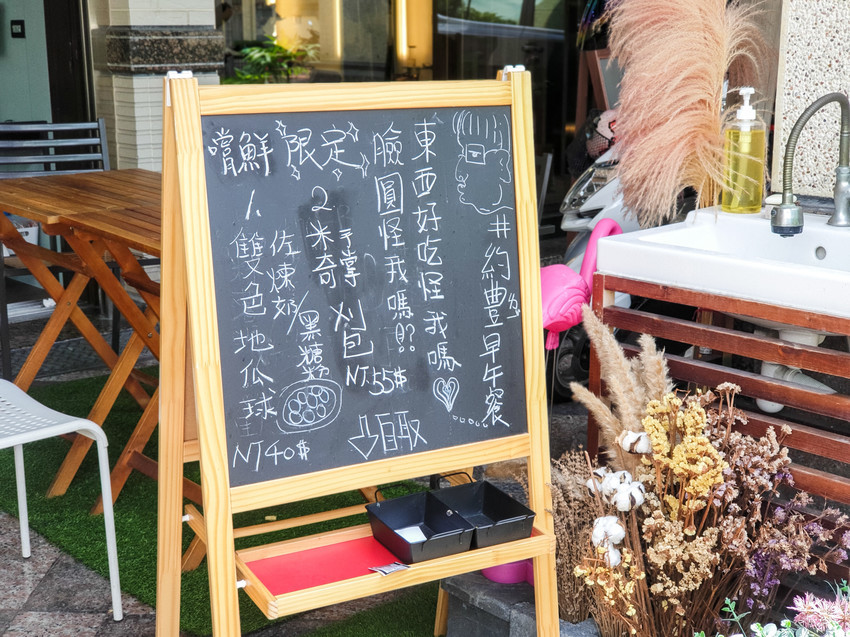 嚐鮮限定
1. 雙色地瓜球
佐煉奶/黑糖粉
NT40$
2 米奇
手掌刈包
NT55$
臉圓怪我嗎!?
東西好吃怪我嗎
#約豐早午餐
自取